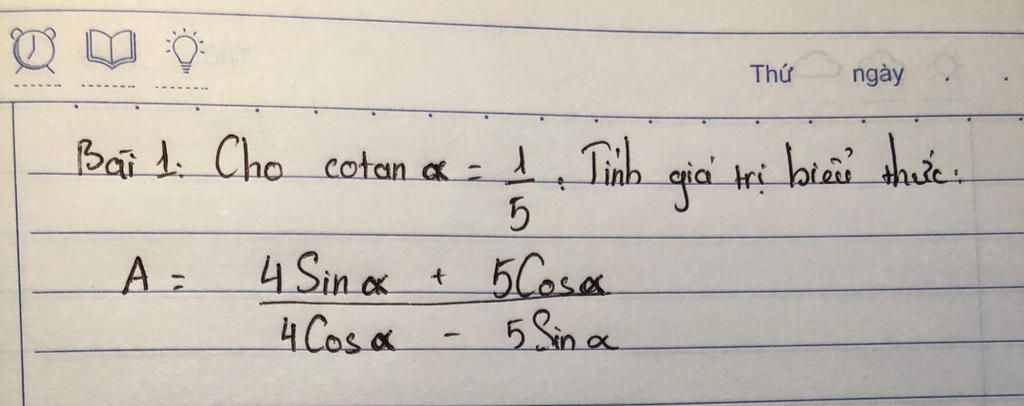 Thứ ngày . .
Bài 1: Cho cotan α = 1/5. Tính giá trị biểu thức:
A = (4Sin α + 5Cosα)/(4Cosα - 5Sin α)